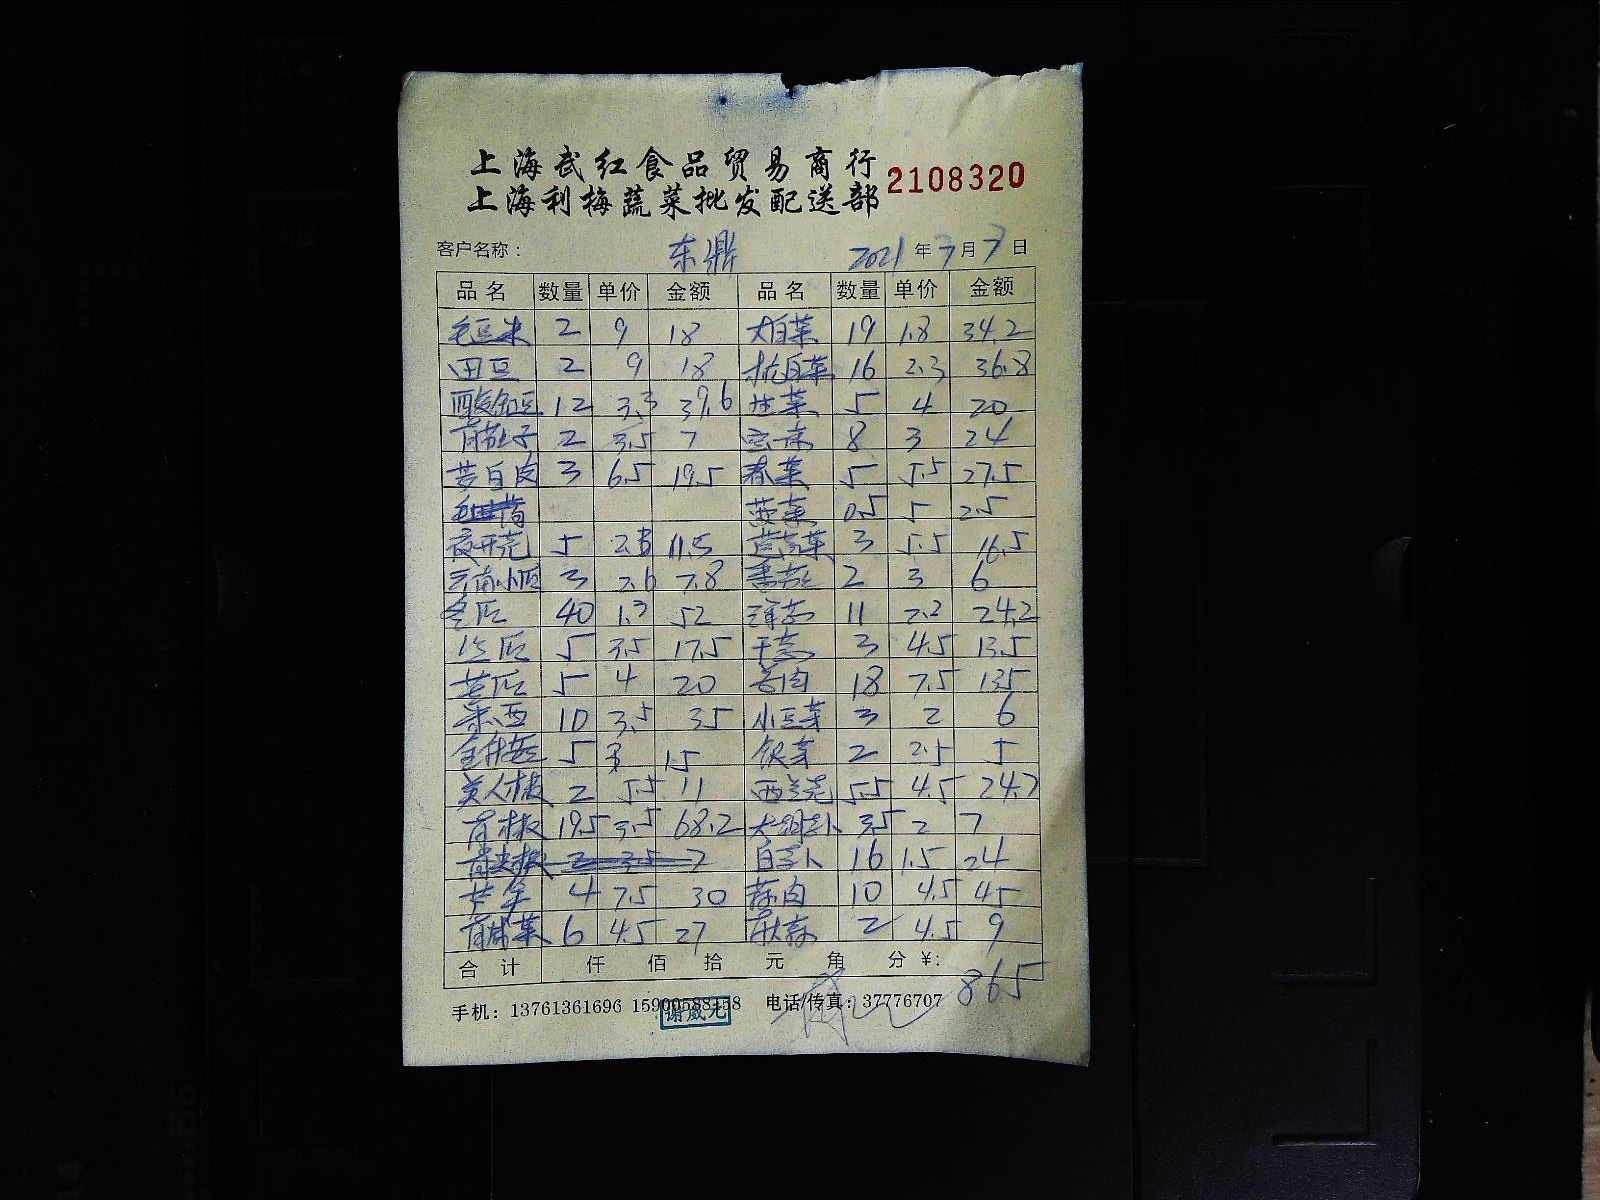 上海武红食品贸易商行
2108320
上海利梅蔬菜批发配送部
客户名称： 东鼎 2021年7月7日
品名 数量 单价 金额 品名 数量 单价 金额
毛豆米 2 9 18 大白菜 19 1.8 34.2
田豆 2 9 18 杭白菜 16 2.3 36.8
酸豇豆 12 3.3 39.6 生菜 5 4 20
青茄子 2 3.5 7 8 3 24
茭白肉 3 6.5 19.5 春菜 5 5.5 27.5
菠菜 0.5 5 2.5
夜开花 5 2.3 11.5 茼蒿菜 3 5.5 16.5
云南小瓜 3 2.6 7.8 番茄 2 3 6
冬瓜 40 1.3 52 洋葱 11 2.2 24.2
丝瓜 5 3.5 17.5 干葱 3 4.5 13.5
苦瓜 5 4 20 姜肉 18 7.5 135
10 3.5 35 小豆芽 3 2 6
5 3 15 银芽 2 2.5 5
美人椒 2 5.5 11 西兰花 5.5 4.5 24.7
青椒 19.5 3.5 68.2 大胡卜 3.5 2 7
青尖椒 2 3.5 7 白罗卜 16 1.5 24
芦笋 4 7.5 30 蒜肉 10 4.5 45
6 4.5 27 2 4.5 9
合计 仟 佰 拾 元 角 分 ¥： 865
手机：13761361696 15900588158 电话/传真：37776707
谢威元